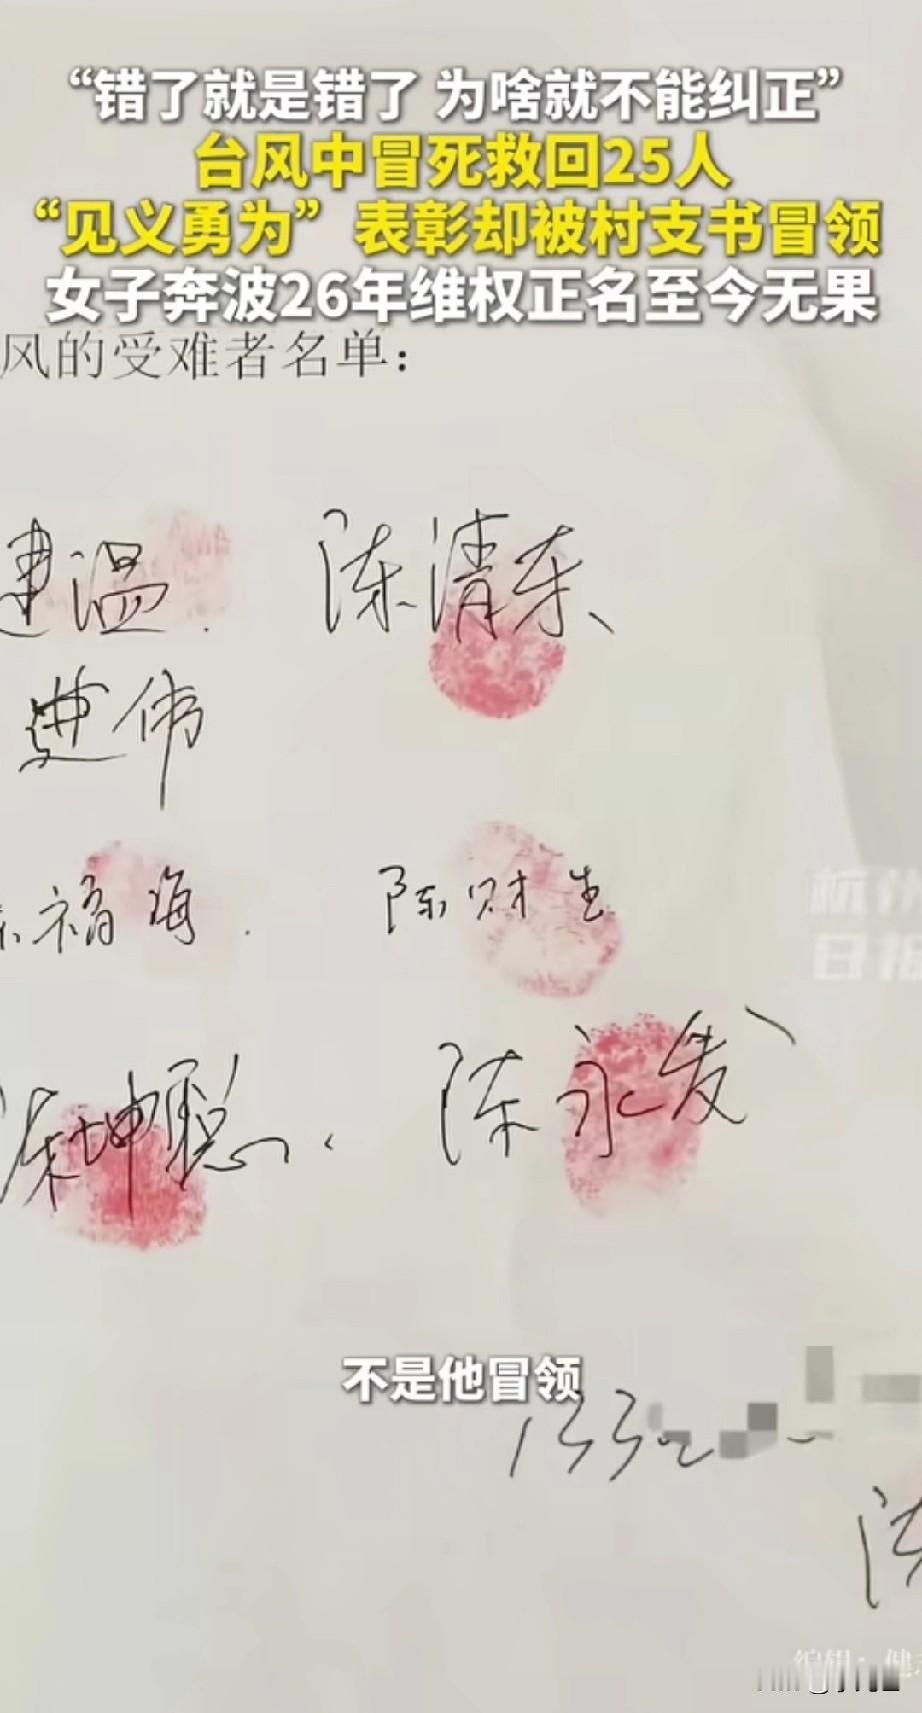 “错了就是错了 为啥就不能纠正”
台风中冒死救回25人
“见义勇为”表彰却被村支书冒领
女子奔波26年维权正名至今无果
风的受难者名单：
建温 陈清东
建伟
福海 陈财生
陈坤聪 陈永发
杭州
日报
不是他冒领
133
编辑：健